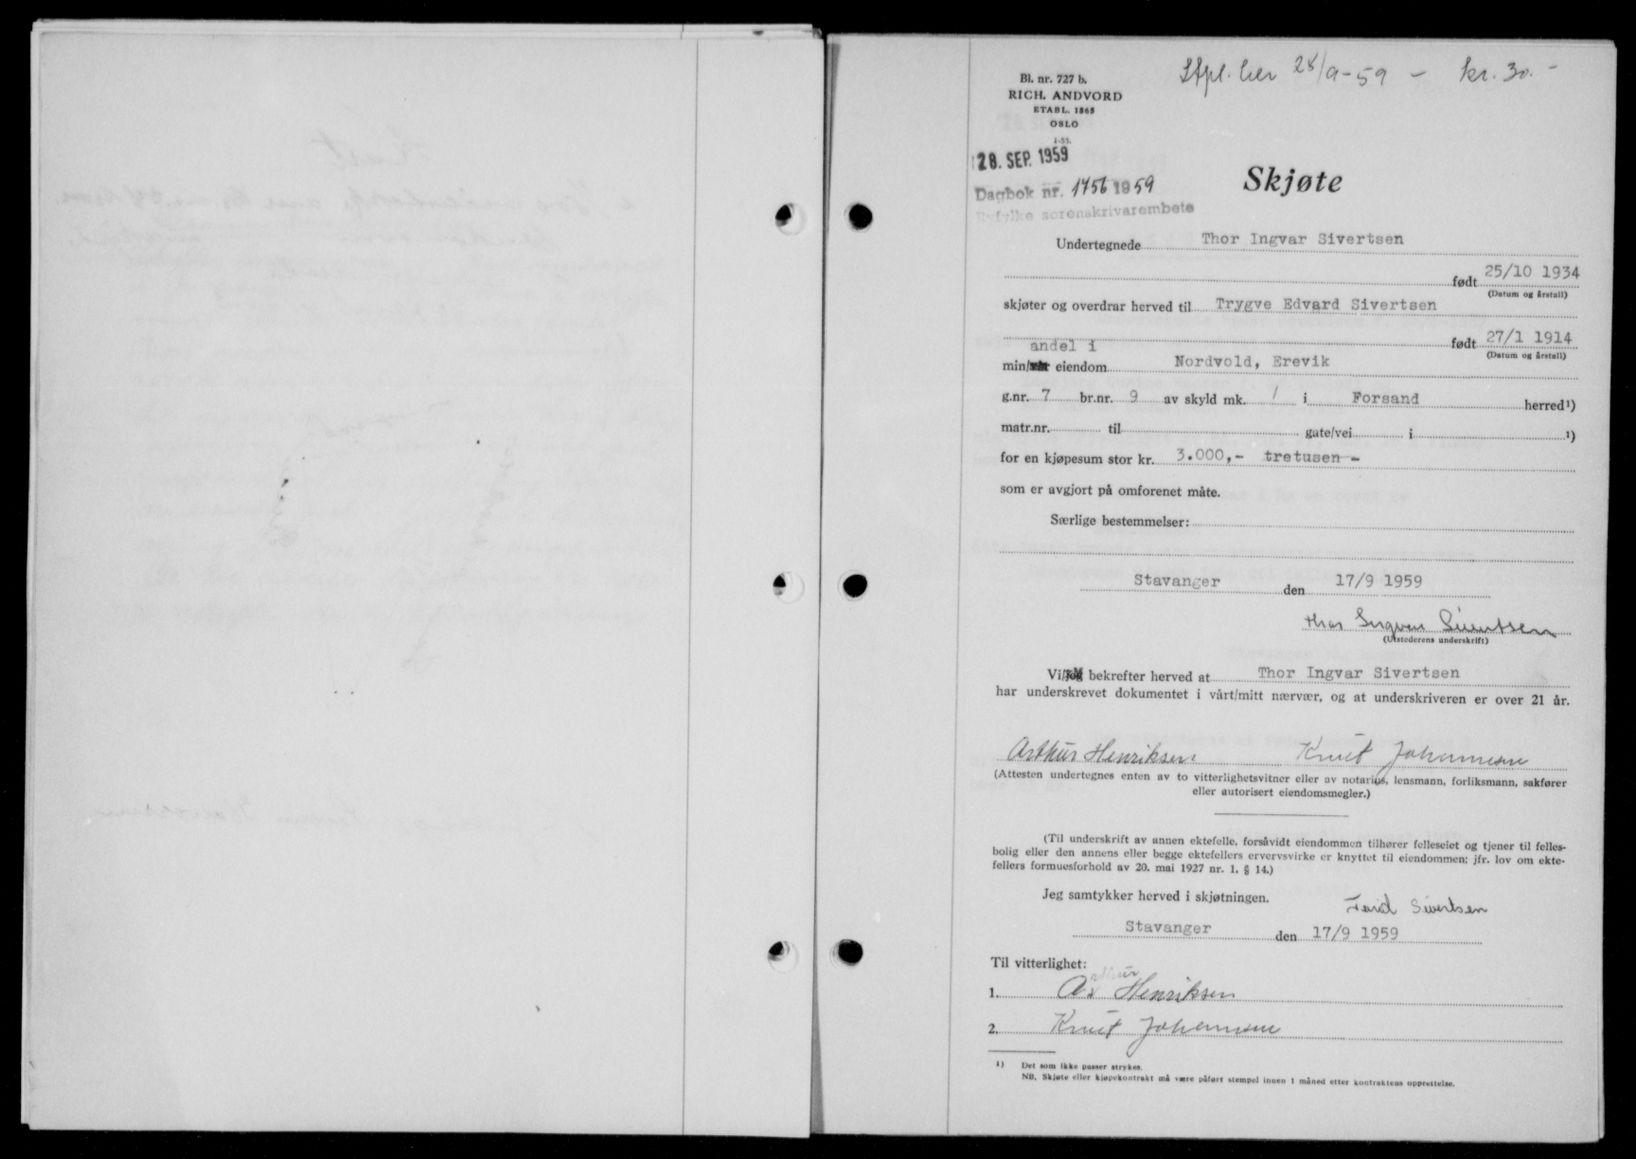 Stpl. her 28/9-59 - kr. 30.-
Bl. nr. 727 b.
RICH. ANDVORD
ETABL. 1865
OSLO
1-53.
28. SEP. 1959
Dagbok nr. 1756 1959
Ryfylke sorenskrivarembete
Skjøte
Undertegnede Thor Ingvar Sivertsen
født 25/10 1934
(Datum og årstall)
skjøter og overdrar herved til Trygve Edvard Sivertsen
født 27/1 1914
(Datum og årstall)
andel i
min/vår eiendom Nordvold, Erevik
g.nr. 7 br.nr. 9 av skyld mk. 1 i Forsand herred¹)
matr.nr. til gate/vei i ¹)
for en kjøpesum stor kr. 3.000,- tretusen -
som er avgjort på omforenet måte.
Særlige bestemmelser:
Stavanger den 17/9 1959
Thor Ingvar Sivertsen
(Utstederens underskrift)
Vi/jeg bekrefter herved at Thor Ingvar Sivertsen
har underskrevet dokumentet i vårt/mitt nærvær, og at underskriveren er over 21 år.
Arthur Henriksen Knut Johannesen
(Attesten undertegnes enten av to vitterlighetsvitner eller av notarius, lensmann, forliksmann, sakfører
eller autorisert eiendomsmegler.)
(Til underskrift av annen ektefelle, forsåvidt eiendommen tilhører felleseiet og tjener til felles-
bolig eller den annens eller begge ektefellers ervervsvirke er knyttet til eiendommen; jfr. lov om ekte-
fellers formuesforhold av 20. mai 1927 nr. 1, § 14.)
Jeg samtykker herved i skjøtningen.
Sivertsen
Stavanger den 17/9 1959
Til vitterlighet:
1. Arthur Henriksen
2. Knut Johannesen
¹) Det som ikke passer strykes.
NB. Skjøte eller kjøpekontrakt må være påført stempel innen 1 måned etter kontraktens opprettelse.